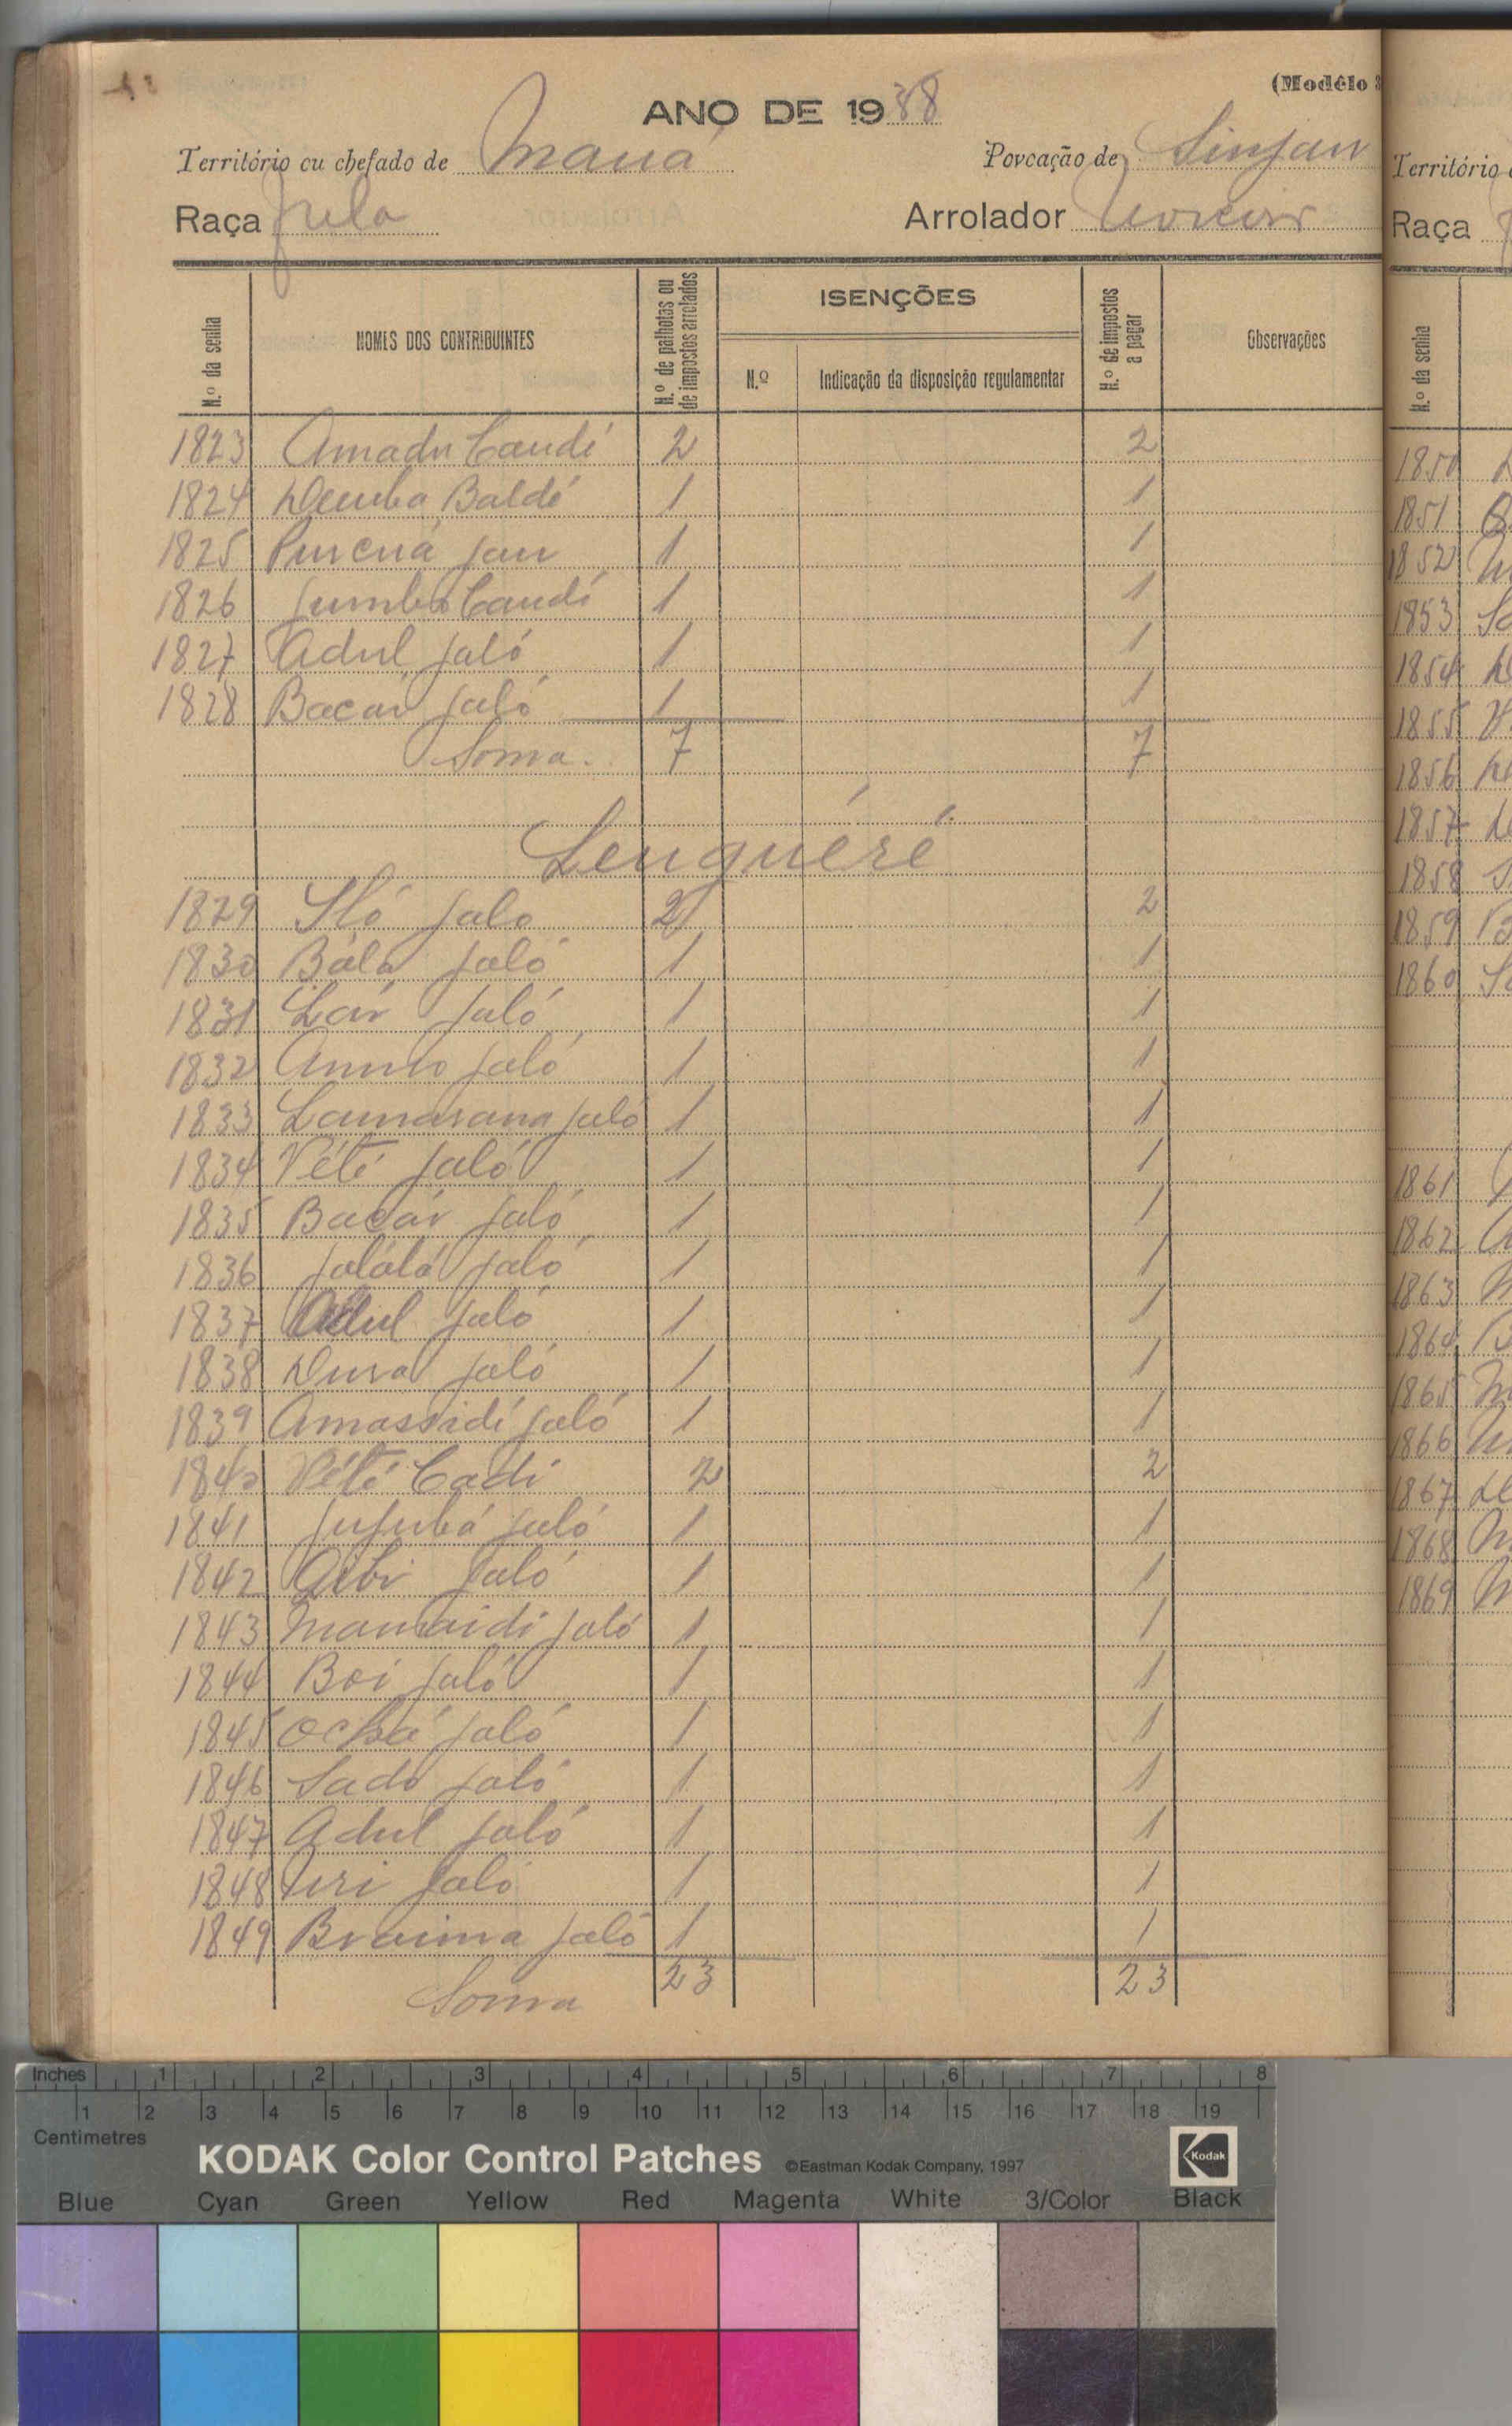 (Modêlo 3
ANO DE 1938
Território cu chefado de Maná Povcação de Sinjan
Raça Fula Arrolador
N.º da senha NOMES DOS CONTRIBUINTES N.º de palhotas ou de impostos arrolados ISENÇÕES N.º de impostos a pagar Observações
N.º Indicação da disposição regulamentar
1823 Amadu Candé 2 2
1824 Demba Baldé 1 1
1825 Jau 1 1
1826 Jumbo Candé 1 1
1827 Adul Jaló 1 1
1828 Bacar Jaló 1 1
Soma 7 7
Lenguéré
1829 Jaló 2 2
1830 Bála Jaló 1 1
1831 Jaló 1 1
1832 Jaló 1 1
1833 Lamarana Jaló 1 1
1834 Pété Jaló 1 1
1835 Bacár Jaló 1 1
1836 Jaló 1 1
1837 Adul Jaló 1 1
1838 Dura Jaló 1 1
1839 Amassidi Jaló 1 1
1840 Pété Cadi 2 2
1841 Jujubá Jaló 1 1
1842 Jaló 1 1
1843 Jaló 1 1
1844 Boi Jaló 1 1
1845 Ochá Jaló 1 1
1846 Sado Jaló 1 1
1847 Adul Jaló 1 1
1848 Juri Jaló 1 1
1849 Braima Jaló 1 1
Soma 23 23
Território
Raça
N.º da senha
1850
1851
1852
1853
1854
1855
1856
1857
1858
1859
1860
1861
1862
1863
1864
1865
1866
1867
1868
1869
Inches 1 2 3 4 5 6 7 8
1 2 3 4 5 6 7 8 9 10 11 12 13 14 15 16 17 18 19
Centimetres
KODAK Color Control Patches ©Eastman Kodak Company, 1997 Kodak
Blue Cyan Green Yellow Red Magenta White 3/Color Black